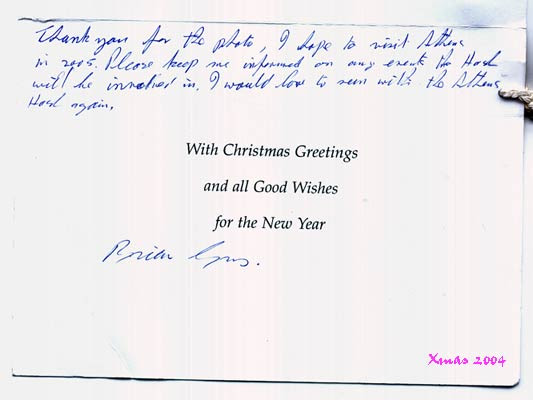 Thank you for the photo, I hope to visit Athens
in 2005. Please keep me informed on any events the Hash
will be involved in. I would love to run with the Athens
Hash again.
With Christmas Greetings
and all Good Wishes
for the New Year
Brian
Xmas 2004